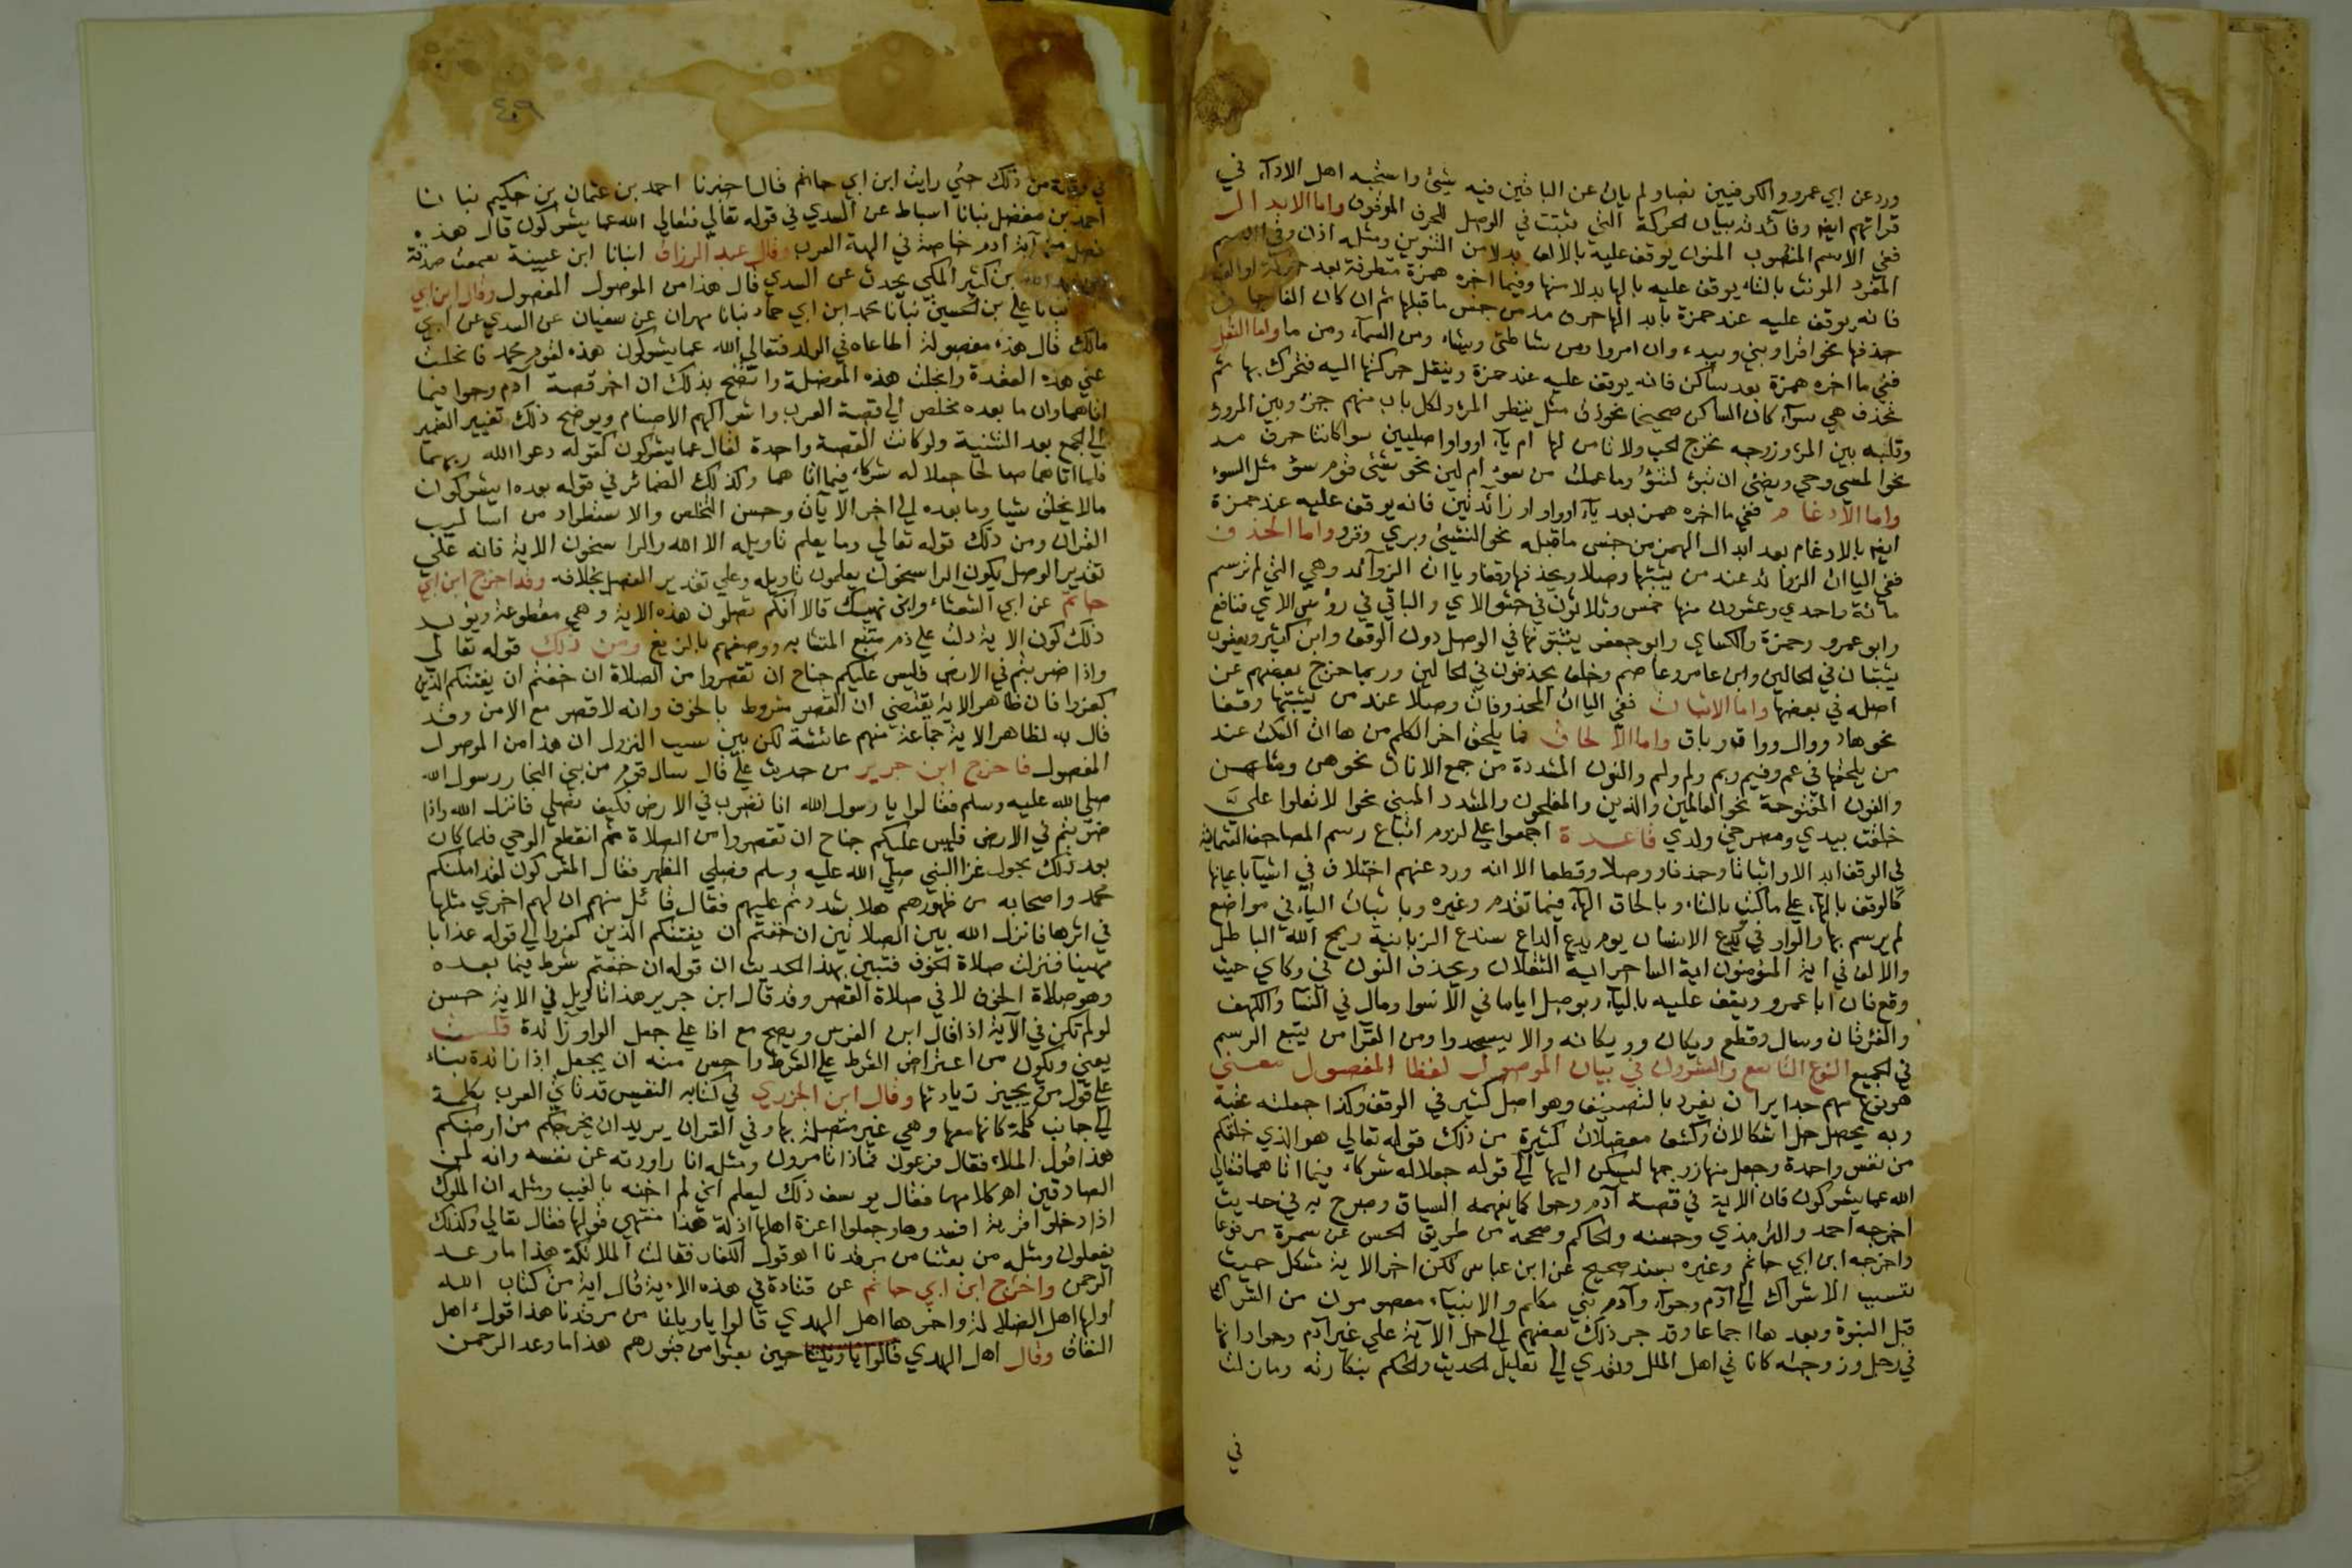 ورد عن ابي عمرو والكوفيين نصا ولم يات عن الباقين فيه شيئ واستحبه اهل الاداء في
قراتهم ايضا وفائدته بيان الحركة التي تثبت في الوصل للحرف الموقوف واما الابدال
ففي الاسم المنصوب المنون يوقف عليه بالالف بدلا من التنوين ومثله اذن وفي الاسم
المفرد المونث بالتاء يوقف عليه بالها بدلا منها وفيما اخره همزة متطرفة بعد حركة او الف
فانه يوقف عليه عند حمزة بابدالها حرف مد من جنس ما قبلها ثم ان كان الفا جاز
حذفها نحو اقرا ونبي ويبدء وان امروا ومن شاطئ ويشاء ومن السماء ومن ما واما النقل
ففي ما اخره همزة بعد ساكن فانه يوقف عليه عند حمزة وينقل حركتها اليه فتحرك بها ثم
تحذف هي سواء كان الساكن صحيحا نحو دف مثل ينظر المرء ولكل باب منهم جزء وبين المرء
وقلبه بين المرء وزوجه يخرج الخب ولا ثامن لها ام ياء او واوا اصليين سوا كانتا حرف مد
نحو المسي وجي ويضئ ان تبوء لتنوء وما عملت من سوء ام لين نحو شيئ قوم سوء مثل السوء
واما الادغام ففي ما اخره همز بعد ياء او واو زائدتين فانه يوقف عليه عند حمزة
ايضا بالادغام بعد ابدال الهمز من جنس ما قبله نحو النسيئ وبري وقرو واما الحذف
ففي الياات الزوائد عند من يثبتها وصلا ويحذفها وقفا وياات الزوائد وهي التي لم ترسم
مائة واحدي وعشرون منها خمس وثلاثون في حشو الاي والباقي في روس الاي فنافع
وابو عمرو وحمزة والكساي وابو جعفر يثبتونها في الوصل دون الوقف وابن كثير ويعقوب
يثبتان في الحالين وابن عامر وعاصم وخلف يحذفون في الحالين وربما خرج بعضهم عن
اصله في بعضها واما الاثبات ففي الياات المحذوفات وصلا عند من يثبتها وقفا
نحو هاد ووال وواق وباق واما الالحاق فما يلحق اخر الكلم من هاات السكت عند
من يلحقها في عم وفيم وبم ولم ومم والنون المشددة من جمع الاناث نحو هن ومثلهن
والنون المفتوحة نحو العالمين والذين والمفلحون والمشدد المبني نحو الا تعلوا علي
خلقت بيدي ومصرخي ولدي قاعدة اجمعوا علي لزوم اتباع رسم المصاحف العثمانية
في الوقف ابدالا واثباتا وحذفا ووصلا وقطعا الا انه ورد عنهم اختلاف في اشيا باعيانها
كالوقف بالهاء علي ما كتب بالتاء وبالحاق الهاء فيما تقدم وغيره وباثبات الياء في مواضع
لم يرسم بها والواو في ويدع الانسان يوم يدع الداع سندع الزبانية ويمح الله الباطل
والالف في ايه المؤمنون ايه الساحر ايه الثقلان ويحذف النون في وكاي حيث
وقع فان ابا عمرو ويقف عليه بالياء ويوصل اياما في الاسرا ومال في النسا والكهف
والفرقان وسال وقطع ويكان وويكانه والا يسجدوا ومن القرا من يتبع الرسم
في الجميع النوع التاسع والعشرون في بيان الموصول لفظا المفصول معني
هو نوع مهم جدير ان يفرد بالتصنيف وهو اصل كبير في الوقف وكذا جعلته عقبة
وبه يحصل حل اشكالات وكشف معضلات كثيرة من ذلك قوله تعالي هو الذي خلقكم
من نفس واحدة وجعل منها زوجها ليسكن اليها الي قوله جعلا له شركاء فيما اتاهما فتعالي
الله عما يشركون فان الاية في قصة آدم وحوا كما يفهمه السياق وصرح به في حديث
اخرجه احمد والترمذي وحسنه والحاكم وصححه من طريق الحسن عن سمرة مرفوعا
واخرجه ابن ابي حاتم وغيره بسند صحيح عن ابن عباس لكن اخر الاية مشكل حيث
نسب الاشراك الي آدم وحواء وآدم نبي مكلم والانبياء معصومون من الشرك
قبل النبوة وبعدها اجماعا وقد جر ذلك بعضهم الي حل الآية علي غير آدم وحوا وانها
في رجل وزوجته كانا في اهل الملل وتعدي الي تعليل الحديث والحكم بنكارته وما زلت
في
٤٠٩
في وقفة من ذلك حتي رايت ابن ابي حاتم قال اخبرنا احمد بن عثمان بن حكيم نبانا
احمد بن مفضل نبانا اسباط عن السدي في قوله تعالي فتعالي الله عما يشركون قال هذه
فصل من آية ادم خاصة في الهة العرب وقال عبد الرزاق انبانا ابن عيينة سمعت صدقة
بن عبد الله بن كثير المكي يحدث عن السدي قال هذا من الموصول المفصول وقال ابن ابي
نبانا علي بن الحسين نبانا محمد ابن ابي حماد نبانا مهران عن سفيان عن السدي عن ابي
مالك قال هذه مفصولة اطاعاه في الولد فتعالي الله عما يشركون هذه لقوم محمد فانحلت
عني هذه العقدة وانجلت هذه المعضلة واتضح بذلك ان اخر قصة آدم وحوا فيما
اتاهما وان ما بعده تخلص الي قصة العرب واشراكهم الاصنام ويوضح ذلك تغيير الضمير
الي الجمع بعد التثنية ولو كانت القصة واحدة لقال عما يشركون كقوله دعوا الله ربهما
فلما اتاهما صالحا جعلا له شركاء فيما اتاهما وكذلك الضمائر في قوله بعده ايشركون
مالا يخلق شيا وما بعده الي اخر الآيات وحسن التخلص والاستطراد من اساليب
القران ومن ذلك قوله تعالي وما يعلم تاويله الا الله والراسخون الاية فانه علي
تقدير الوصل يكون الراسخون يعلمون تاويله وعلي تقدير الفصل بخلافه وقد اخرج ابن ابي
حاتم عن ابي الشعثاء وابي نهيك قالا انكم تصلون هذه الاية وهي مقطوعة ويؤيد
ذلك كون الاية دلت علي ذم متبع المتشابه ووصفهم بالزيغ ومن ذلك قوله تعالي
واذا ضربتم في الارض فليس عليكم جناح ان تقصروا من الصلاة ان خفتم ان يفتنكم الذين
كفروا فان ظاهر الاية يقتضي ان القصر مشروط بالخوف وانه لا قصر مع الامن وقد
قال به لظاهر الاية جماعة منهم عائشة لكن بين سبب النزول ان هذا من الموصول
المفصول فاخرج ابن جرير من حديث علي قال سال قوم من بني النجار رسول الله
صلي الله عليه وسلم فقالوا يا رسول الله انا نضرب في الارض فكيف نصلي فانزل الله واذا
ضربتم في الارض فليس عليكم جناح ان تقصروا من الصلاة ثم انقطع الوحي فلما كان
بعد ذلك بحول غزا النبي صلي الله عليه وسلم فصلي الظهر فقال المشركون لقد امكنكم
محمد واصحابه من ظهورهم هلا شددتم عليهم فقال قائل منهم ان لهم اخري مثلها
في اثرها فانزل الله بين الصلاتين ان خفتم ان يفتنكم الذين كفروا الي قوله عذابا
مهينا فنزلت صلاة الخوف فتبين بهذا الحديث ان قوله ان خفتم شرط فيما بعده
وهو صلاة الخوف لا في صلاة القصر وقد قال ابن جرير هذا تاويل في الاية حسن
لو لم تكن في الآية اذا قال ابن الفرس ويصح مع اذا علي جعل الواو زائدة قلت
يعني ويكون من اعتراض الشرط علي الشرط واحسن منه ان يجعل اذا زائدة بناء
علي قول من يجيز زيادتها وقال ابن الجزري في كتابه النفيس قد تاتي العرب بكلمة
الي جانب كلمة كانها معها وهي غير متصلة بها وفي القران يريد ان يخرجكم من ارضكم
هذا قول الملاء فقال فرعون فماذا تامرون ومثله انا راودته عن نفسه وانه لمن
الصادقين اهـ كلامها فقال يوسف ذلك ليعلم اني لم اخنه بالغيب ومثله ان الملوك
اذا دخلوا قرية افسدوها وجعلوا اعزة اهلها اذلة هذا منتهي قولها فقال تعالي وكذلك
يفعلون ومثله من بعثنا من مرقدنا اهـ قول الكفار فقالت الملائكة هذا ما وعد
الرحمن واخرج ابن ابي حاتم عن قتادة في هذه الاية قال اية من كتاب الله
اولها اهل الضلالة واخرها اهل الهدي قالوا يا ويلنا من بعثنا من مرقدنا هذا قول اهل
النفاق وقال اهل الهدي قالوا يا ويلنا حين بعثوا من قبورهم هذا ما وعد الرحمن